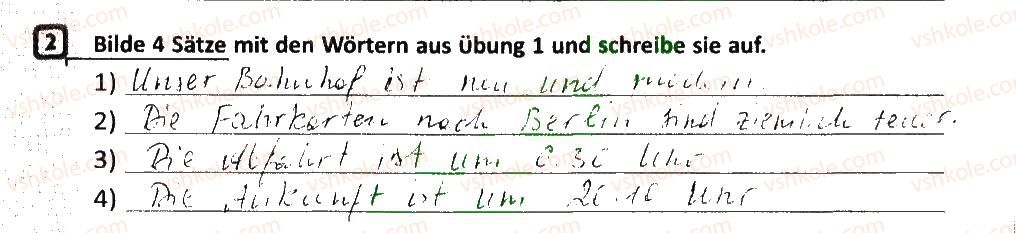 2 Bilde 4 Sätze mit den Wörtern aus Übung 1 und schreibe sie auf.
1) Unser Bahnhof ist neu und
2) Die Fahrkarten nach Berlin sind ziemlich teuer.
3) Die Abfahrt ist um Uhr
4) Die Ankunft ist um Uhr